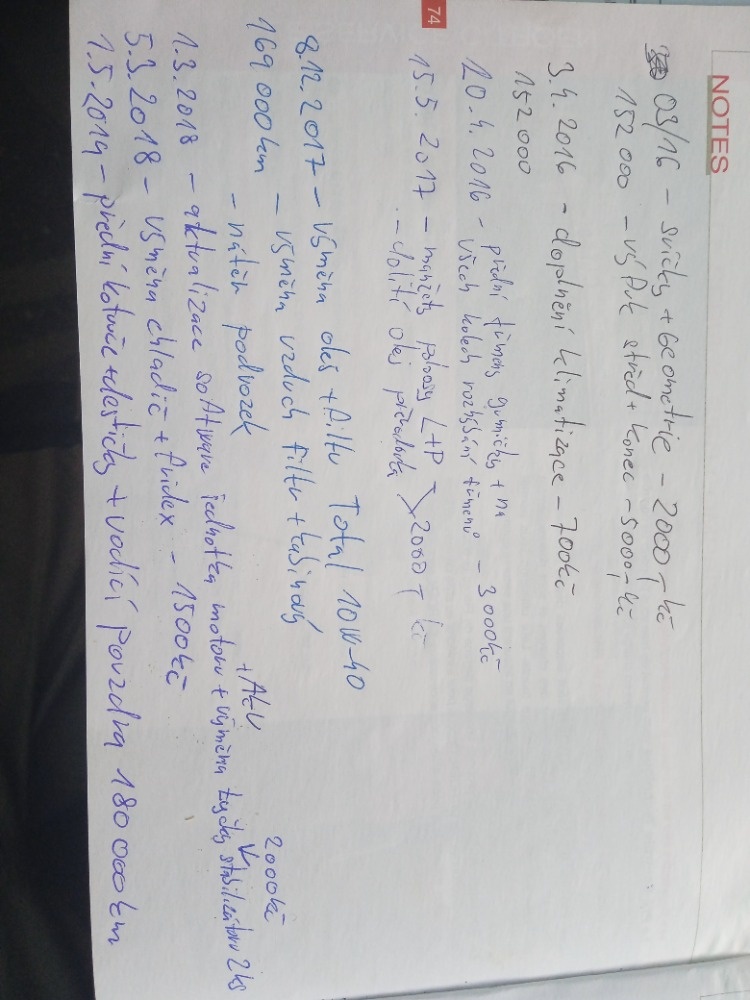 NOTES
03/16 - svíčky + Geometrie - 2000,- kč
152 000 - výfuk střed + konec - 5000,- kč
3.4. 2016 - doplnění klimatizace - 700kč
152 000
20.4. 2016 - přední tlumiče gumičky + na
všech kolech rozhýbání třmenů - 3000kč
15.5. 2017 - manžety poloosy L+P
- dolití olej převodovka 2000,- kč
8.12.2017 - výměna olej + filtr Total 10W-40
169 000km - výměna vzduch filtr + kabinový
- nátěr podvozek
+ AKU
2000kč
1.3.2018 - aktualizace software jednotka motoru + výměna tyčky stabilizátoru 2ks
5.3.2018 - výměna chladič + fridex - 1500kč
1.5.2019 - přední kotouče + destičky + vodící pouzdra 180 000km
74